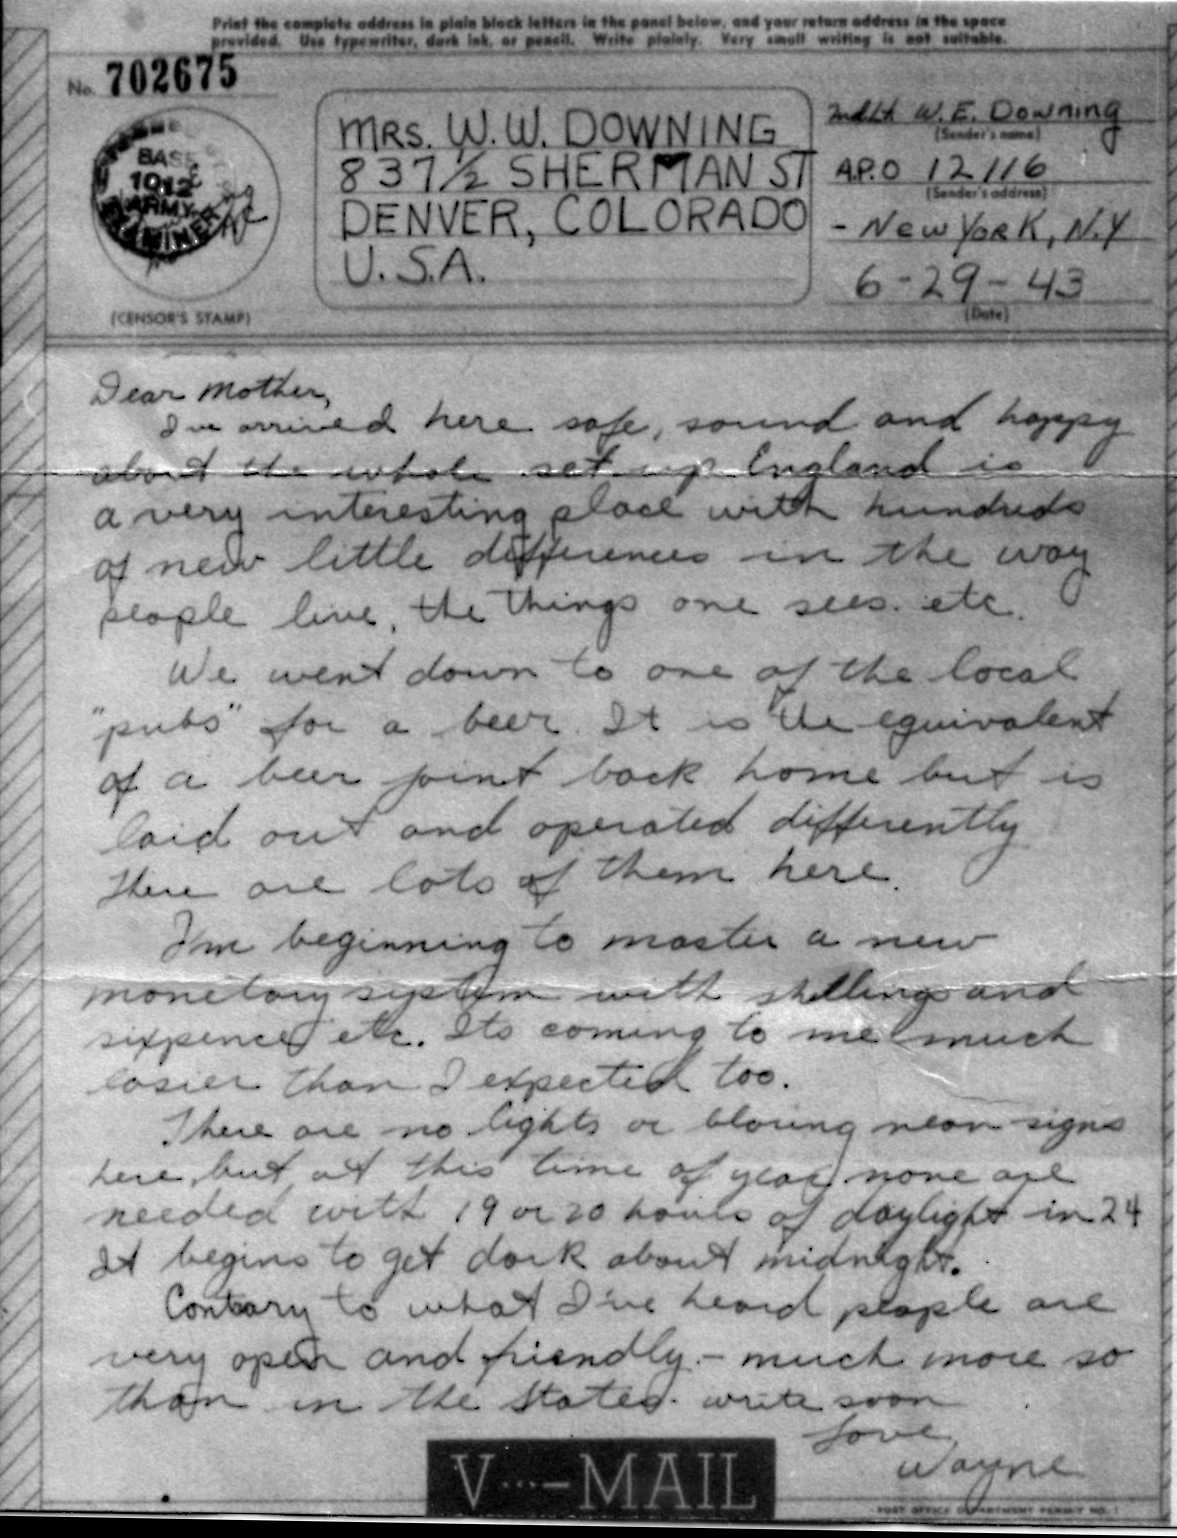 Print the complete address in plain block letters in the panel below, and your return address in the space
provided. Use typewriter, dark ink, or pencil. Write plainly. Very small writing is not suitable.
No. 702675
BASE
1012
ARMY
EXAMINER
(CENSOR'S STAMP)
MRS. W.W. DOWNING
837 1/2 SHERMAN ST
DENVER, COLORADO
U.S.A.
2nd Lt W. E. Downing
(Sender's name)
A.P.O 12116
(Sender's address)
- New York, N.Y
6-29-43
(Date)
Dear Mother,
I've arrived here safe, sound and happy
about the whole set up. England is
a very interesting place with hundreds
of new little differences in the way
people live, the things one sees. etc.
We went down to one of the local
"pubs" for a beer. It is the equivalent
of a beer joint back home but is
laid out and operated differently
There are lots of them here.
I'm beginning to master a new
monetary system with shillings and
sixpence etc. Its coming to me much
easier than I expected too.
There are no lights or blaring neon signs
here, but at this time of year none are
needed with 19 or 20 hours of daylight in 24
It begins to get dark about midnight.
Contrary to what I've heard people are
very open and friendly - much more so
than in the States. write soon
Love
Wayne
V···—MAIL
POST OFFICE DEPARTMENT PERMIT NO. 1